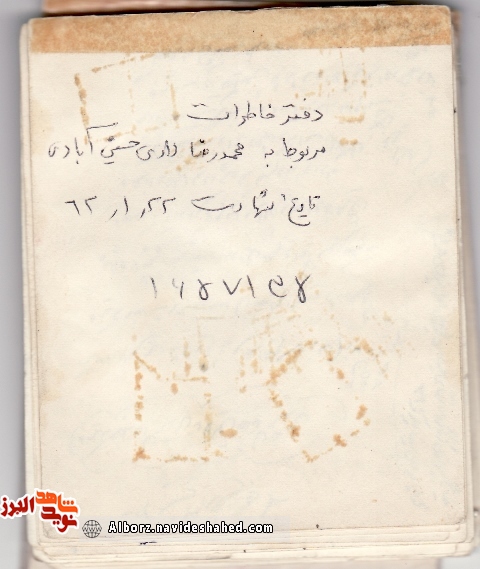 دفتر خاطرات
مربوط به محمدرضا دادی حسن آبادی
تاریخ شهادت ۶۲٫۱٫۲۲
۱۶۵۷۱۳۵
شاهد
نوید
البرز
Alborz.navideshahed.com